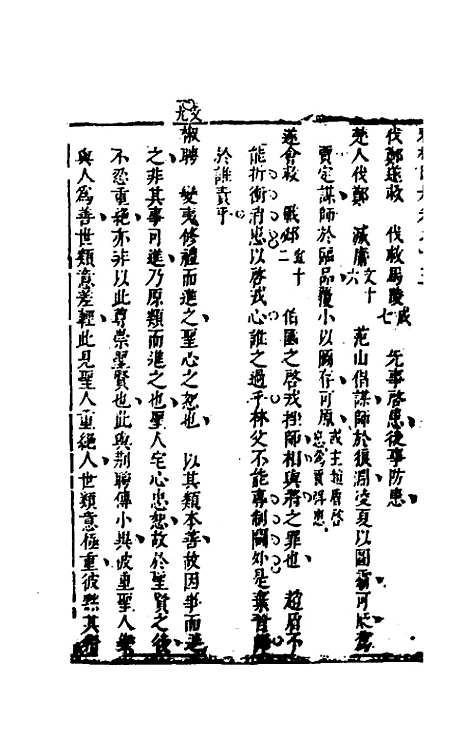 伐鄭遂救 伐救馬陵成七 先事啓患後事防患
楚人伐鄭 滅庸文十六 范山倡謀師於狼淵凌夏以圖霸可灰為
賈定謀師於臨品覆小以圖存可原或主趙盾啓患為賈弭患
遂會救 戰邲宣十二 伯國之啓戎挫師相與將之罪也 趙盾不
能折衝消患以啓戎心誰之過乎林父不能專制閫外是棄晉師
於誰責乎
文九
椒聘 變夷修禮而進之聖心之恕也 以其類本善故因事而進
之非其事可進乃原類而進之也聖人宅心忠恕故於聖賢之後
不忍重絕亦非以此尊崇聖賢也此與荊聘傳小異彼重聖人樂
與人為善世類意差輕此見聖人重絕人世類意極重彼然其